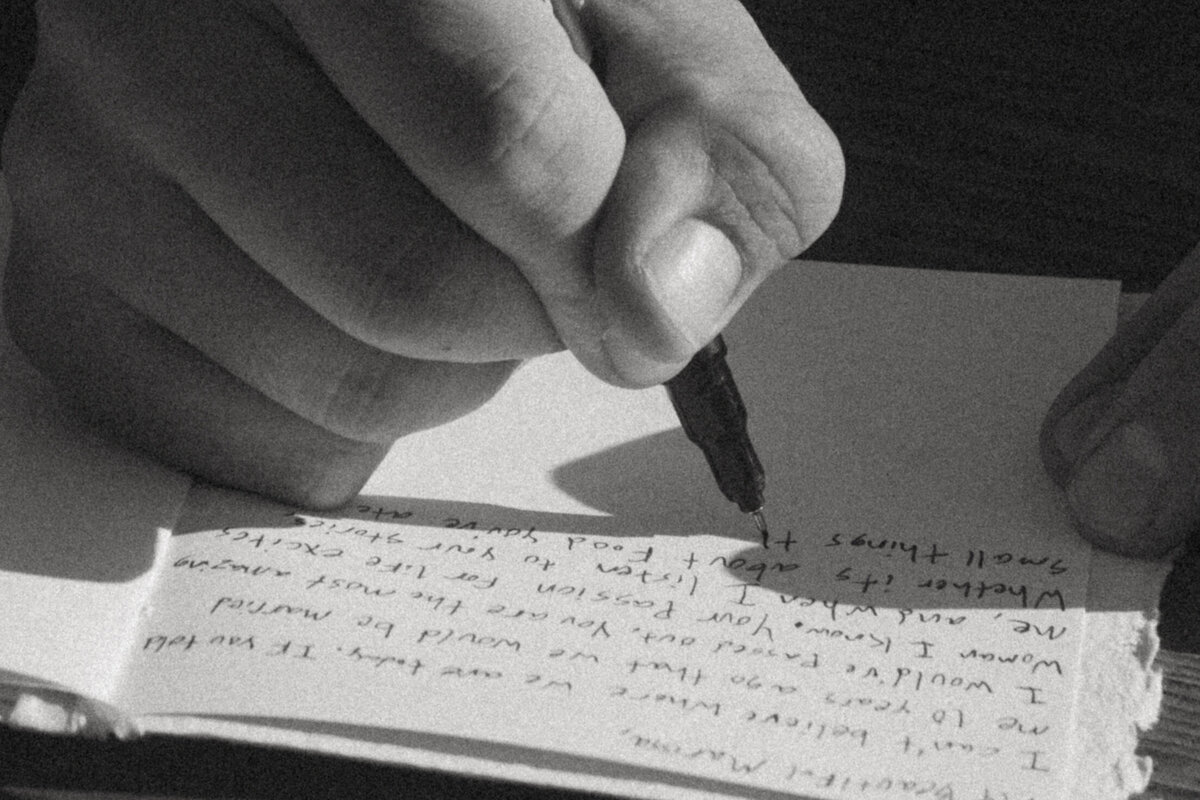 Beautiful
I can't believe where we are today. If you told
me 10 years ago that we would be married
I would've Passed out. You are the most amazing
woman I know. Your Passion for life excites
me, and when I listen to your stories
Whether its about Food you've ate
small things t